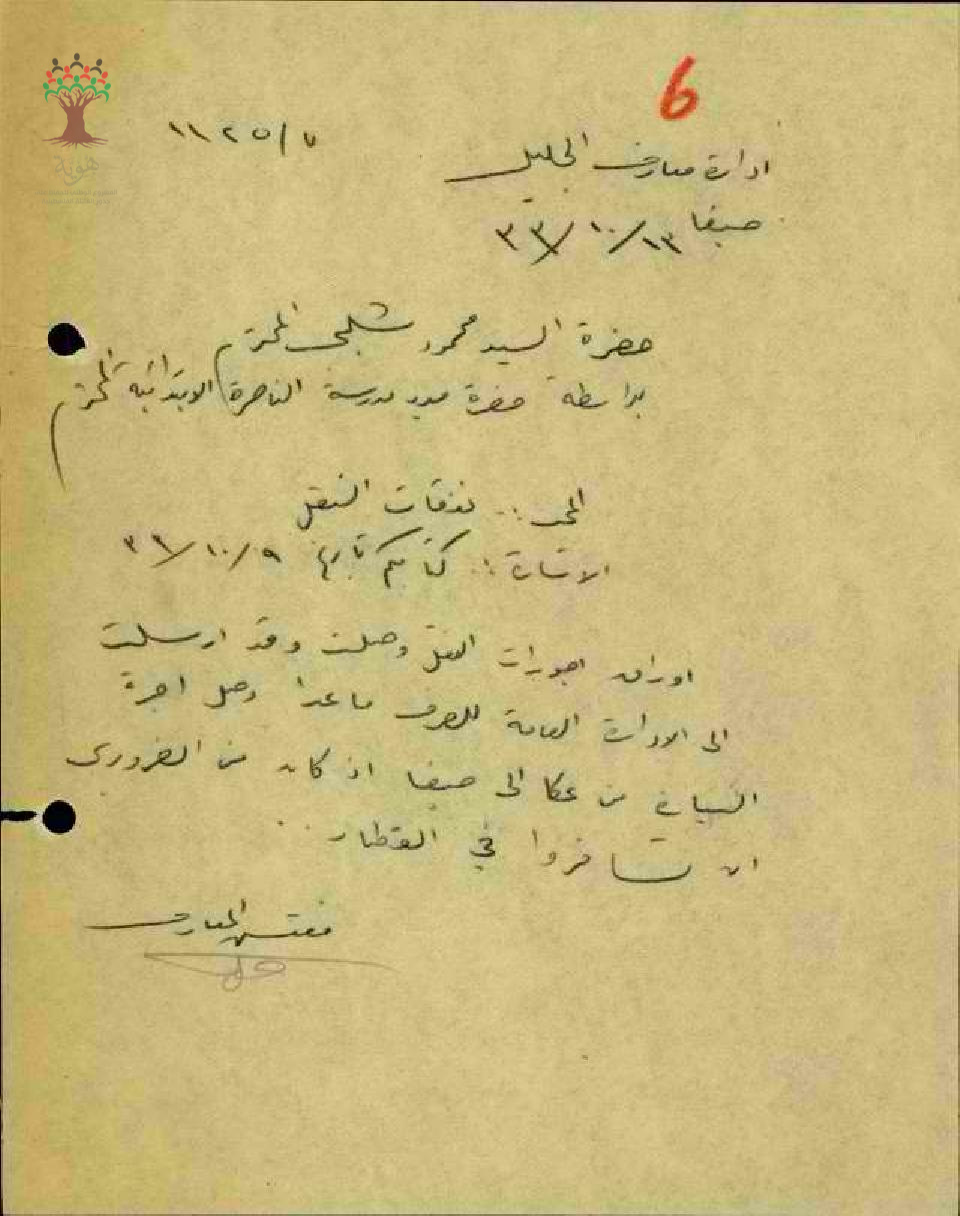 6
ادارة معارف الجليل
١١٢٥/٧
حيفا ١٣/١٠/٣٣
حضرة السيد محمود المحترم
بواسطة حضرة مدير مدرسة الناصرة الابتدائية المحترم
نفقات التنقل
الاشارة :. كتابكم تاريخ ٩/١٠/٣٣
اوراق اجورات النقل وصلت وقد ارسلت
الى الادارة العامة للصرف ما عدا وصل اجرة
السيارة من عكا الى حيفا اذ كان من الضروري
ان تسافروا في القطار
مفتش المعارف
هوية